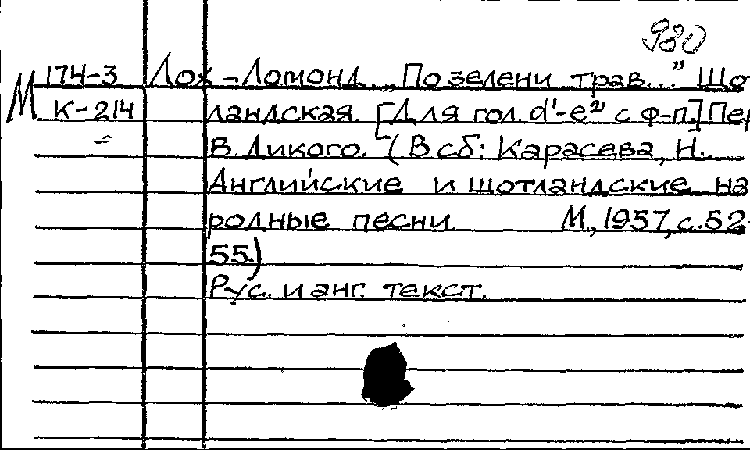 980
М 174-3 Лох-Ломонд. „По зелени трав..." Шо
К-214 ландская. [Для гол. d¹-e² с ф-п.] Пер
В. Дикого. (В сб: Карасева, Н.
Английские и шотландские на
родные песни. М., 1957, с. 52-
55)
Рус. и анг. текст.